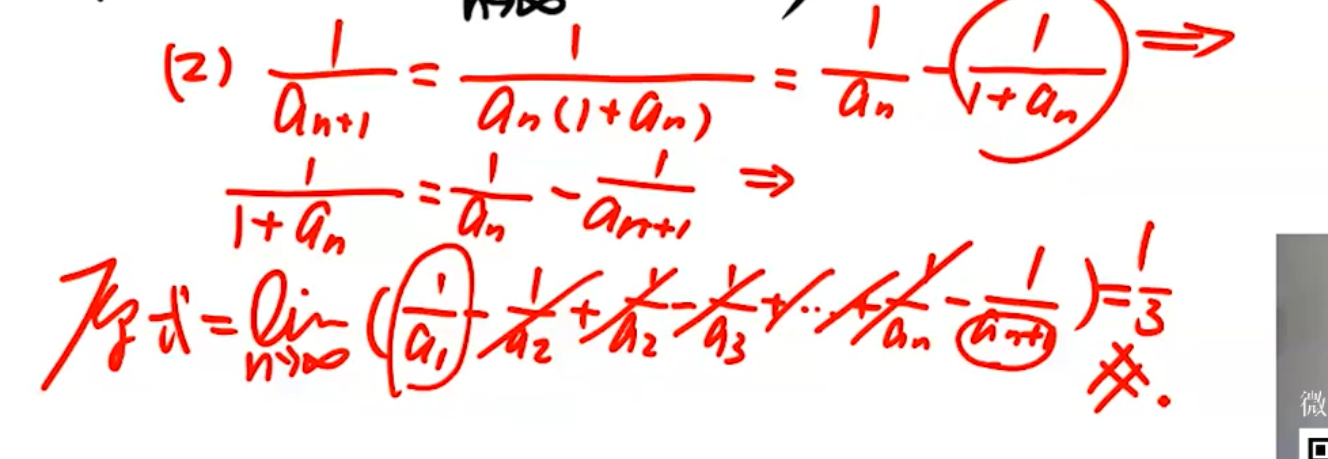 n→∞
(2) 1/a_{n+1} = 1/(a_n(1+a_n)) = 1/a_n - 1/(1+a_n) ⇒
1/(1+a_n) = 1/a_n - 1/a_{n+1} ⇒
原式 = lim_{n→∞} (1/a_1 - 1/a_2 + 1/a_2 - 1/a_3 + ... + 1/a_n - 1/a_{n+1}) = 1/3
#.
微